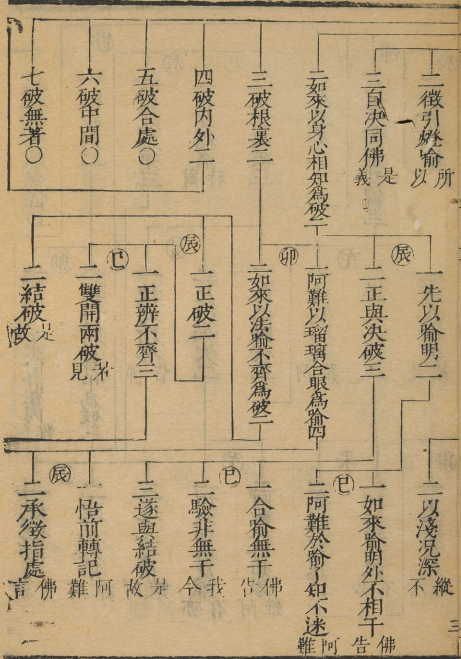 二徵引燈喻 所以
三自決同佛 是義
二如來以身心相知為破二
三破根裏二
四破內外二
五破合處〇
六破中間〇
七破無著〇
辰
一先以喻明二
二正與決破三
卯
一阿難以瑠璃合眼為喻四
二如來以法喻不齊為破二
辰
一正破二
一正辨不齊三
巳
二雙開兩破 若見
二結破 是故
三
二以淺況深 縱不
巳
一如來喻明外不相干 佛告阿難
二阿難於喻知不迷
二合喻無干 佛告
巳
二驗非無干 我今
三遂與結破 是故
一悟前轉記 阿難
辰
二承徵指處 佛言